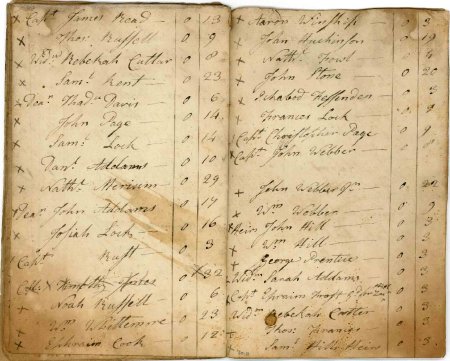 x Capt James Read — 0 13
x Thos Russell — 0 9
Wid. Rebekah Cuttar — 0 8
x Saml Kent — 0 23
Dea. Thad Davis — 0 6
x John Page — 0 14
x Saml Lock — 0 14
x Danl Addams 0 10
x Nathl 0 29
Dea John Addams — 0 17
x Josiah Lock — 0 16
x Capt Rust — 0 3
132
x Noah Russell — 0 6
x Wm Whittemre — 0 23
x Ephraim Cook — 0 12
+ Aaron Winship — 0 3
x John Huchinson 0 19
x Nathl 0 4
x John Stone — 0 20
x Ichabod Fessenden — 0 3
x Frances Lock — 0 8
x Capt Christopher Page — 0 9
x Capt John Webber — 0 8
x John Webber Jr — 0 22
x Wm Webber — 0 9
Heirs John Hill — 0 3
x Wm Hill — 0 3
x George Prentice — 0 3
Wid. Sarah Addams — 0 3
Capt Ephraim 0 3
Wid Rebekah Cutter — 0 3
x Thos Francis — 0 3
x Saml Hills Heirs — 0 3